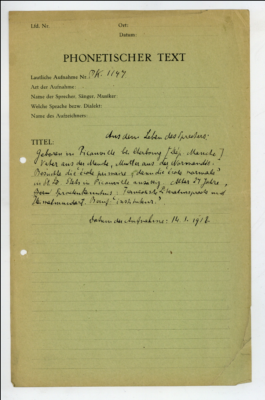 Lfd. Nr.
Ort:
Datum:
PHONETISCHER TEXT
Lautliche Aufnahme Nr. PK 1147
Art der Aufnahme:
Name der Sprecher, Sänger, Musiker:
Welche Sprache bezw. Dialekt:
Name des Aufzeichners:
TITEL:
Aus dem Leben des Sprechers.
Geboren in bei Cherbourg (dép. Manche).
Vater aus der Manche, Mutter aus der Normandie.
Besuchte die école primaire, dann die école normale
in St. Lô. Stets in ansässig. Alter 27 Jahre.
Französisch
Heimatmundart. Beruf: instituteur.
Datum der Aufnahme: 14. 1. 1918.